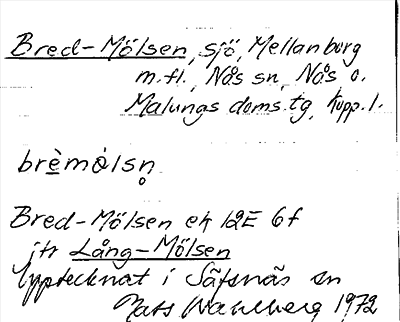 Bred-Mölsen, sjö, Mellanborg
m.fl., Nås sn, Nås o.
Malungs doms.tg, Kopp.l.
brèmòlsn̥
Bred-Mölsen ek 12E 6f
jfr Lång-Mölsen
Upptecknat i Säfsnäs sn
Mats Wahlberg 1972